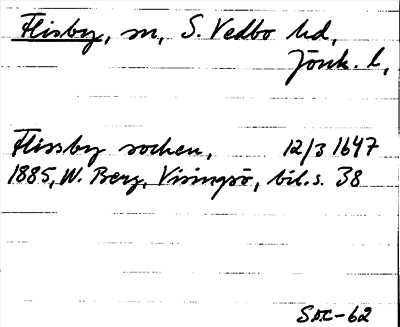 Flisby, sn, S. Vedbo hd,
Jönk. l,
Flissby sochen, 12/3 1647
1885, W. Berg, Visingsö, bil.s. 38
SOC-62